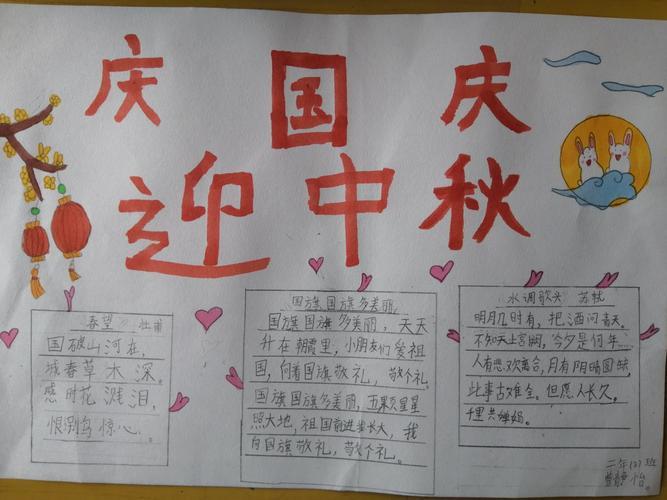 庆国庆
迎中秋
春望 杜甫
国破山河在,
城春草木深。
感时花溅泪,
恨别鸟惊心。
国旗国旗多美丽
国旗国旗多美丽,天天
升在朝霞里,小朋友们爱祖
国,向着国旗敬礼,敬个礼。
国旗国旗多美丽,五颗星星
照大地,祖国前进我长大,我
向国旗敬礼,敬个礼。
水调歌头 苏轼
明月几时有,把酒问青天。
不知天上宫阙,今夕是何年…
人有悲欢离合,月有阴晴圆缺,
此事古难全。但愿人长久,
千里共婵娟。
二年(2)班
静怡